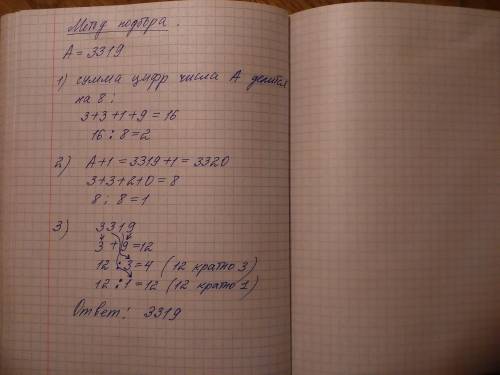 Метод подбора.
A = 3319
1) сумма цифр числа A делится
на 8:
3+3+1+9 = 16
16 : 8 = 2
2) A+1 = 3319+1 = 3320
3+3+2+0 = 8
8 : 8 = 1
3) 3319
3 + 9 = 12
12 : 3 = 4 (12 кратно 3)
12 : 1 = 12 (12 кратно 1)
Ответ: 3319